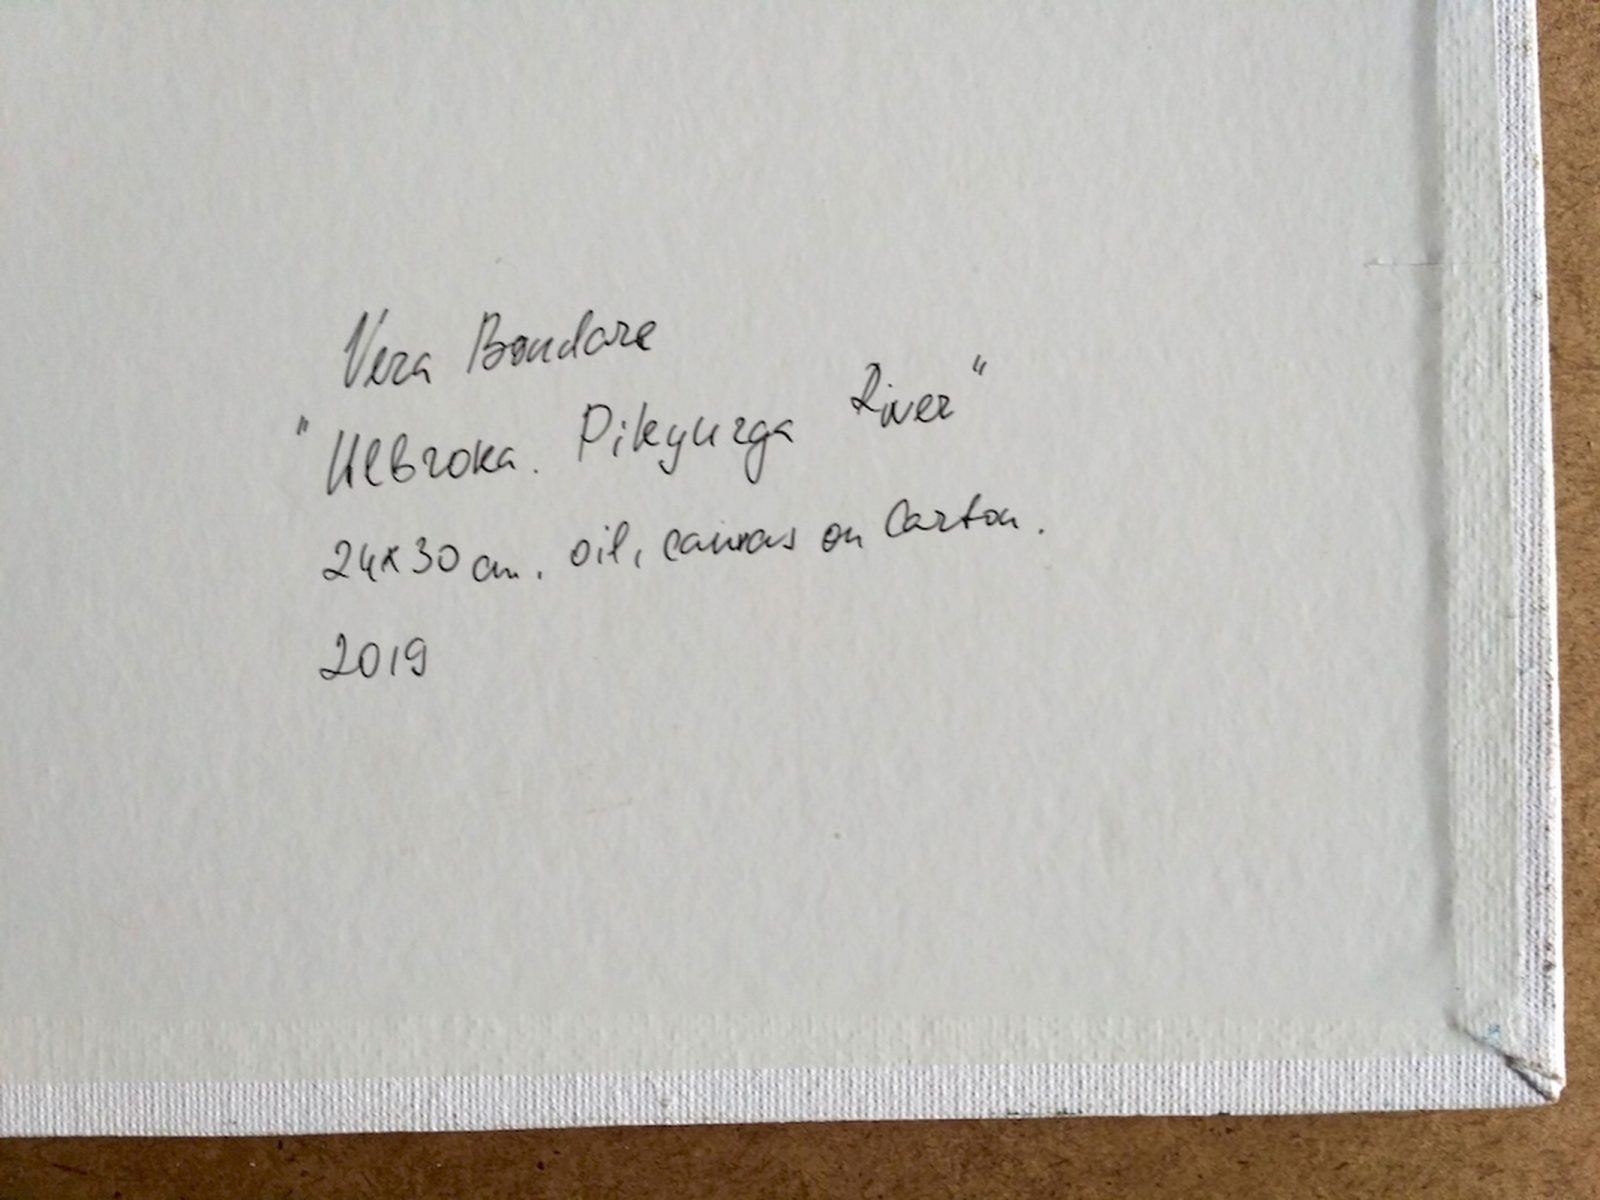 Vera Bondare
"Ulbroka. Pikyurga River"
24x30 cm. oil, canvas on carton.
2019